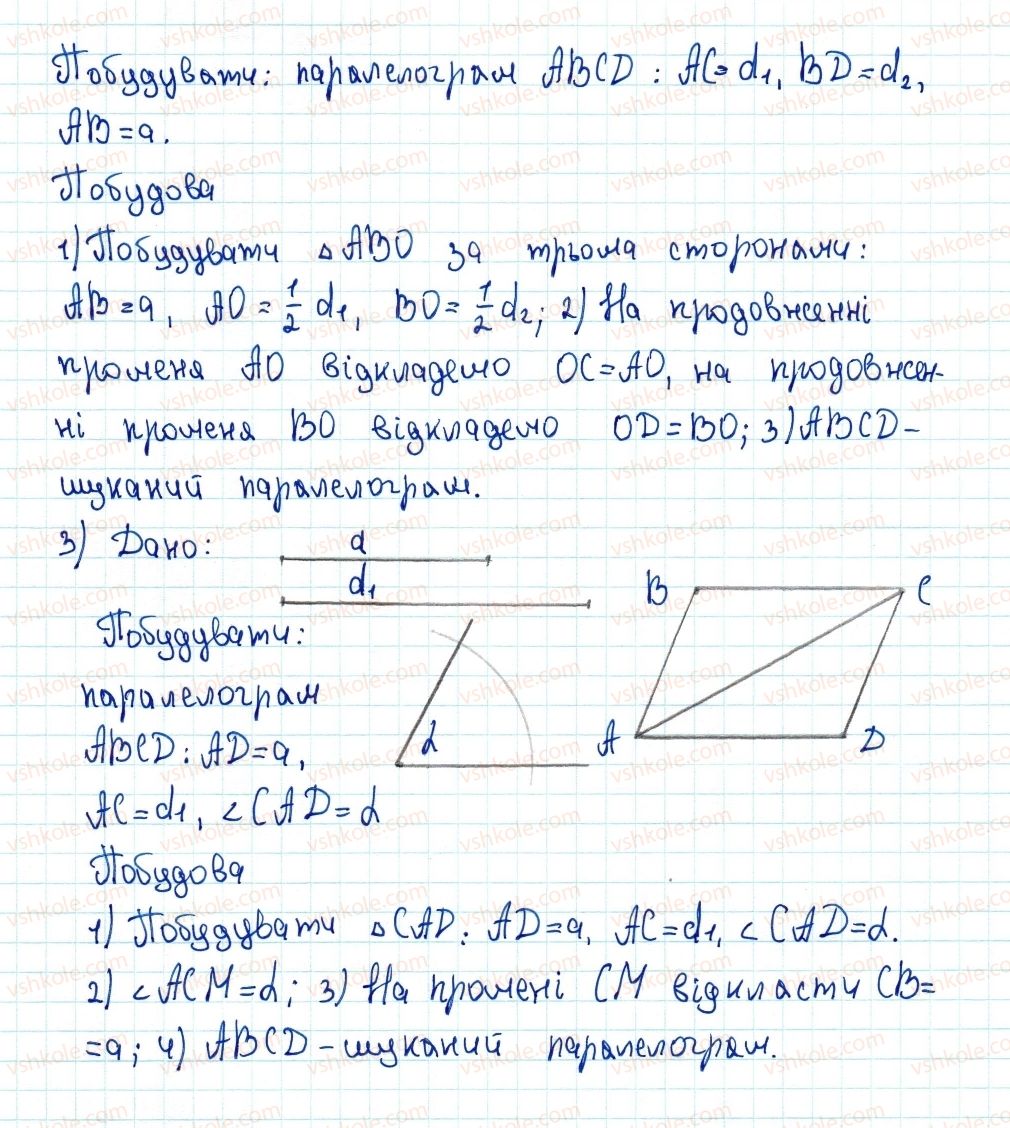 Побудувати: паралелограм ABCD : AC = d₁, BD = d₂,
AB = a.
Побудова
1) Побудувати △ABO за трьома сторонами:
AB = a, AO = 1/2 d₁, BO = 1/2 d₂; 2) На продовженні
променя AO відкладемо OC = AO, на продовжен-
ні променя BO відкладемо OD = BO; 3) ABCD –
шуканий паралелограм.
3) Дано:
a
d₁
B C
Побудувати:
паралелограм
ABCD : AD = a,
α
A D
AC = d₁, ∠CAD = α
Побудова
1) Побудувати △CAD : AD = a, AC = d₁, ∠CAD = α.
2) ∠ACM = α; 3) На промені CM відкласти CB =
= a; 4) ABCD – шуканий паралелограм.
vshkole.com